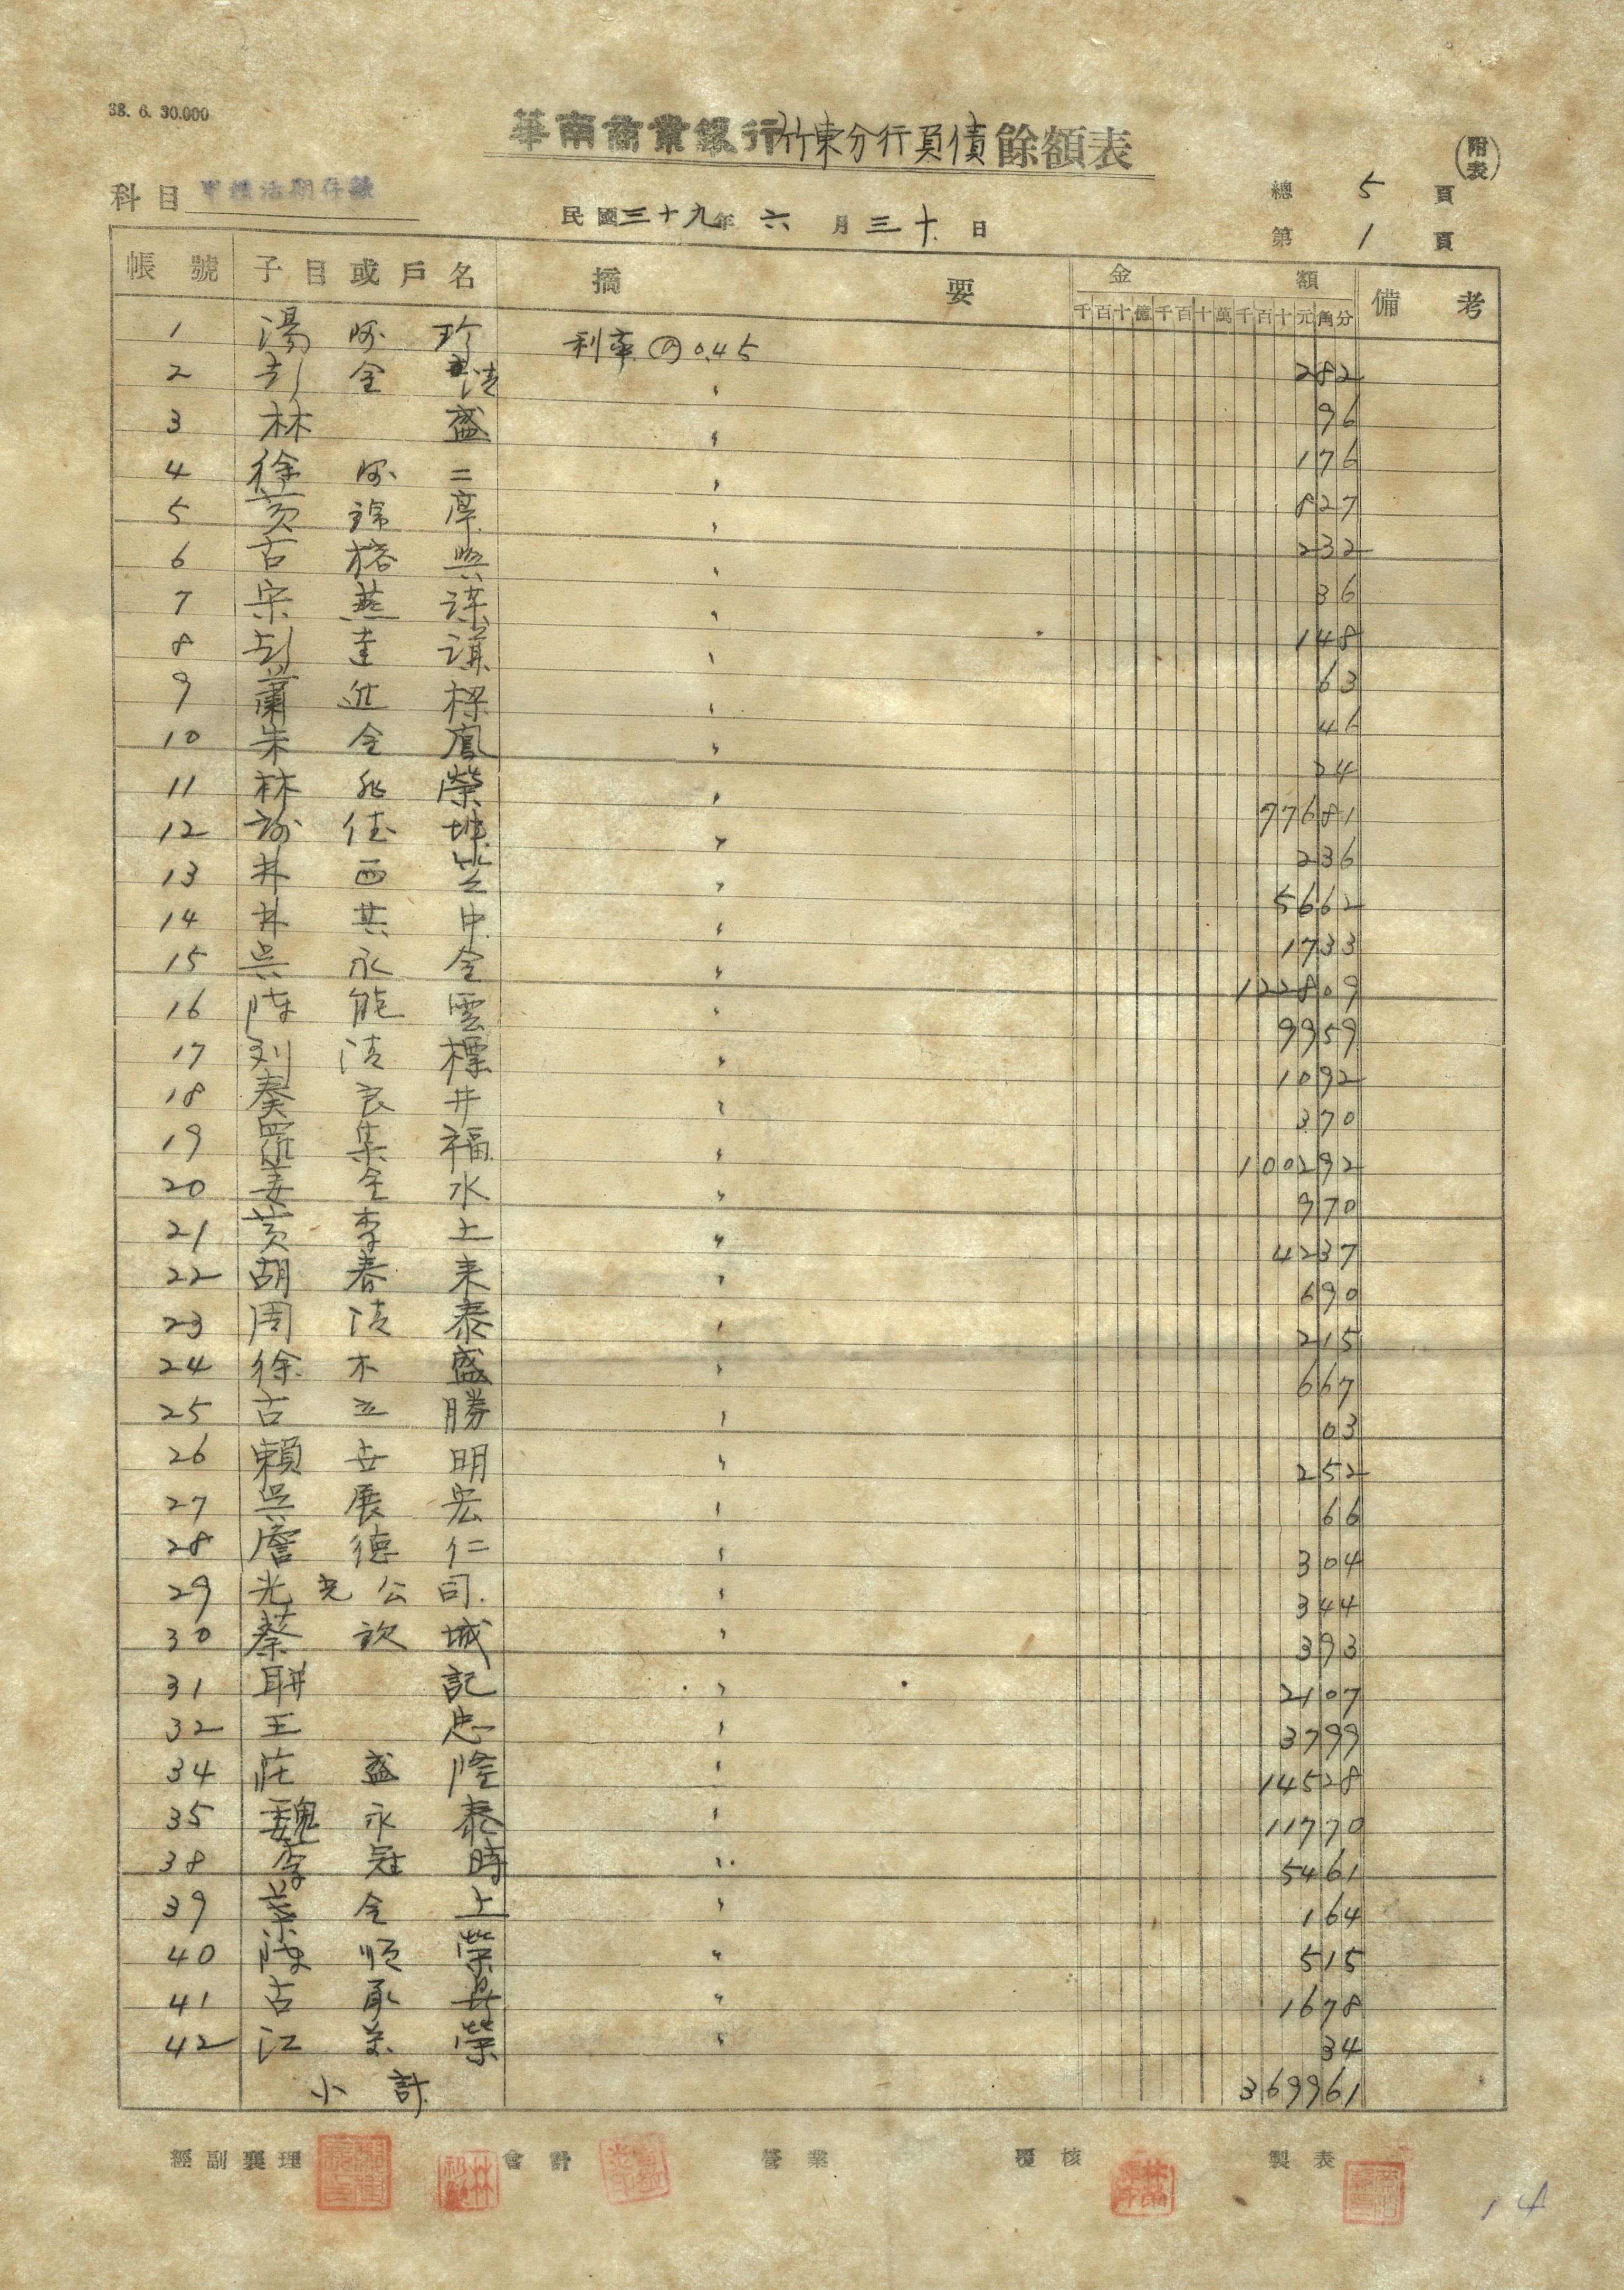 38. 6. 30.000
華南商業銀行竹東分行負債餘額表
(附表)
科目 甲種活期存款
民國三十九年六月三十日
總 5 頁
第 1 頁
帳號 子目或戶名 摘要 金額 備考
千百十億千百十萬千百十元角分
1 湯阿珍 利率 0.45 282
2 彭金清 〃 96
3 林盛 〃 176
4 徐阿二 〃 827
5 黃錦 〃 232
6 古榕興 〃 36
7 宋燕謀 〃 148
8 彭達謀 〃 63
9 蕭進樑 〃 46
10 朱金鳳 〃 24
11 林兆榮 〃 77681
12 謝佳 〃 236
13 林西芝 〃 5662
14 林其中 〃 1733
15 吳永金 〃 122809
16 陳能雲 〃 9959
17 劉清標 〃 1092
18 秦良井 〃 370
19 羅集福 〃 100292
20 姜金水 〃 970
21 黃李土 〃 4237
22 胡春來 〃 690
23 周清泰 〃 215
24 徐木盛 〃 667
25 古立勝 〃 03
26 賴世明 〃 252
27 吳展宏 〃 66
28 詹德仁 〃 304
29 光光公司 〃 344
30 蔡欽城 〃 393
31 聯記 〃 2107
32 王忠 〃 3799
34 莊盛隆 〃 14528
35 魏永泰 〃 11770
38 李冠時 〃 5461
39 葉金土 〃 164
40 陳順榮 〃 515
41 古承 〃 1678
42 江榮 〃 34
小計 369961
經副襄理 會計 營業 覆核 製表
14